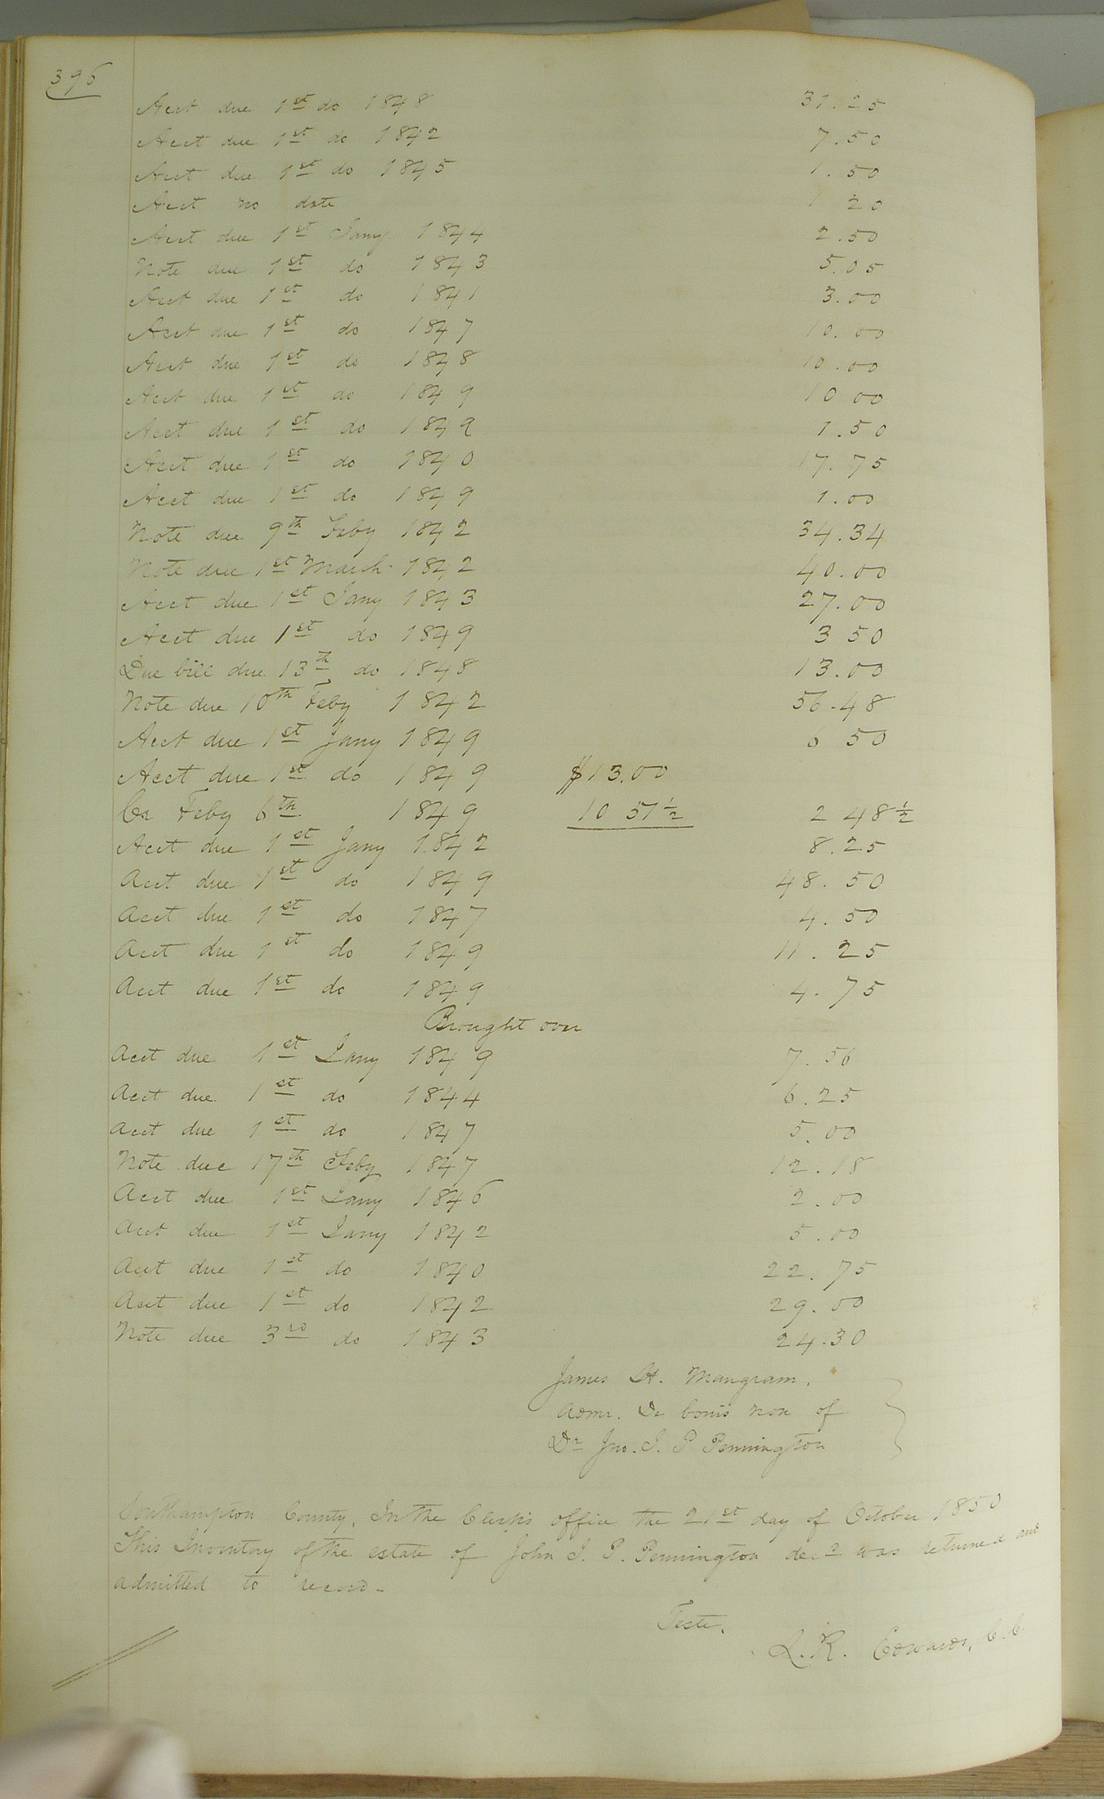 396
Acct due 1st do 1848 31.25
Acct due 1st do 1842 7.50
Acct due 1st do 1845 1.50
Acct no date 1 20
Acct due 1st Jany 1844 2.50
Note due 1st do 1843 5.05
Acct due 1st do 1841 3.00
Acct due 1st do 1847 10.00
Acct due 1st do 1848 10.00
Acct due 1st do 1849 10 00
Acct due 1st do 1849 1.50
Acct due 1st do 1840 17.75
Acct due 1st do 1849 1.00
Note due 9th Feby 1842 34.34
Note due 1st March 1842 40.00
Acct due 1st Jany 1843 27.00
Acct due 1st do 1849 3 50
Due bill due 13th do 1848 13.00
Note due 10th Feby 1842 56.48
Acct due 1st Jany 1849 0 50
Acct due 1st do 1849 $13.00
Cr Feby 6th 1849 10 51½ 2 48½
Acct due 1st Jany 1842 8.25
Acct due 1st do 1849 48.50
Acct due 1st do 1847 4.50
Acct due 1st do 1849 11.25
Acct due 1st do 1849 4.75
Brought over
Acct due 1st Jany 1849 7.56
Acct due 1st do 1844 6.25
Acct due 1st do 1847 5.00
Note due 17th Feby 1847 12.18
Acct due 1st Jany 1846 2.00
Acct due 1st Jany 1842 5.00
Acct due 1st do 1840 22.75
Acct due 1st do 1842 29.00
Note due 3rd do 1843 24.30
James H. Mangram.
Admr. De bonis non of
Dr Jno. J. P. Pennington
Southampton County, In the Clerks office the 21st day of October 1850
This Inventory of the estate of John J. P. Pennington decd was returned and
admitted to record-
Teste,
L. R. Edwards, C.C.